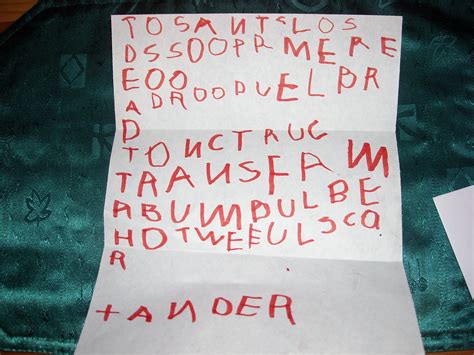 TOSANTSLOS
DSSOOPR MERE
EOO
ADROODUELBR
D
TONCTRUC
TRANSFAM
ABUMBULBE
HOTWEEULSCa
R
+ANDER